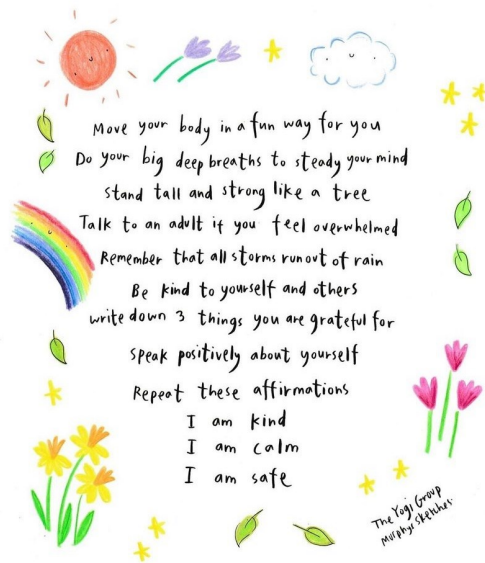 Move your body in a fun way for you
Do your big deep breaths to steady your mind
Stand tall and strong like a tree
Talk to an adult if you feel overwhelmed
Remember that all storms run out of rain
Be kind to yourself and others
write down 3 things you are grateful for
speak positively about yourself
Repeat these affirmations
I am kind
I am calm
I am safe
The Yogi Group
Murphys Sketches.